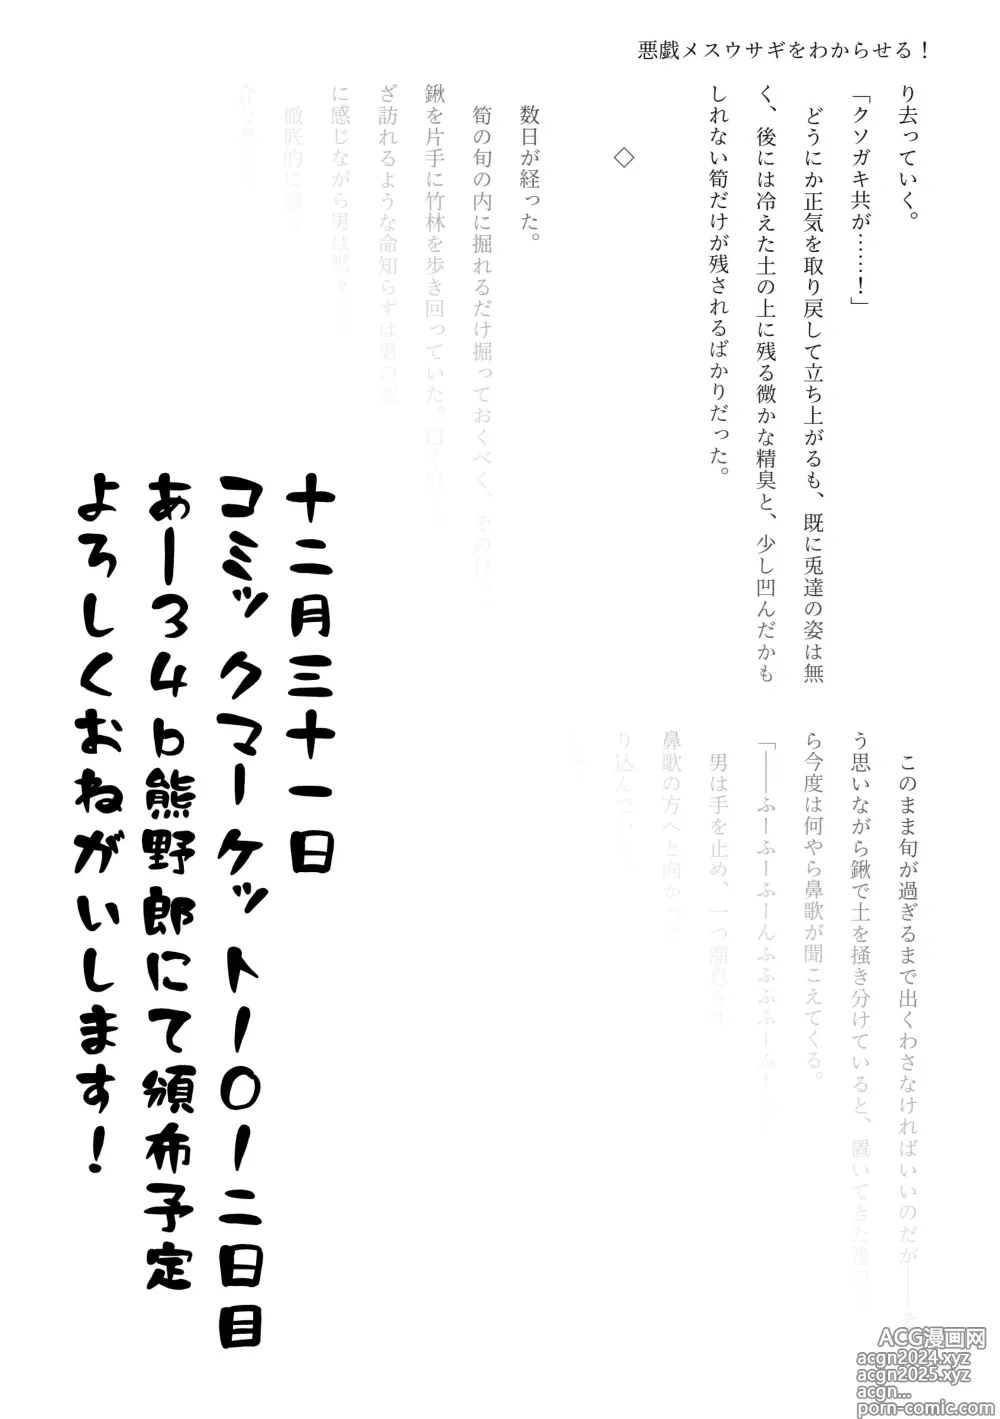 悪戯メスウサギをわからせる！
り去っていく。
「クソガキ共が……！」
どうにか正気を取り戻して立ち上がるも、既に兎達の姿は無
く、後には冷えた土の上に残る微かな精臭と、少し凹んだかも
しれない筍だけが残されるばかりだった。
◇
数日が経った。
筍の旬の内に掘れるだけ掘っておくべく、その日
鍬を片手に竹林を歩き回っていた。
ざ訪れるような命知らずは男の
に感じながら男は
徹底的に
このまま旬が過ぎるまで出くわさなければいいのだが――そ
う思いながら鍬で土を掻き分けていると、置いてきた
ら今度は何やら鼻歌が聞こえてくる。
「――ふーふーふーんふふふふーふー
男は手を止め、一つ溜息を
鼻歌の方へと向か
り込んでい
十二月三十一日
コミックマーケット101二日目
あー34b熊野郎にて頒布予定
よろしくおねがいします！
ACG漫画网
acgn2024.xyz
acgn2025.xyz
acgn...
porn-comic.com